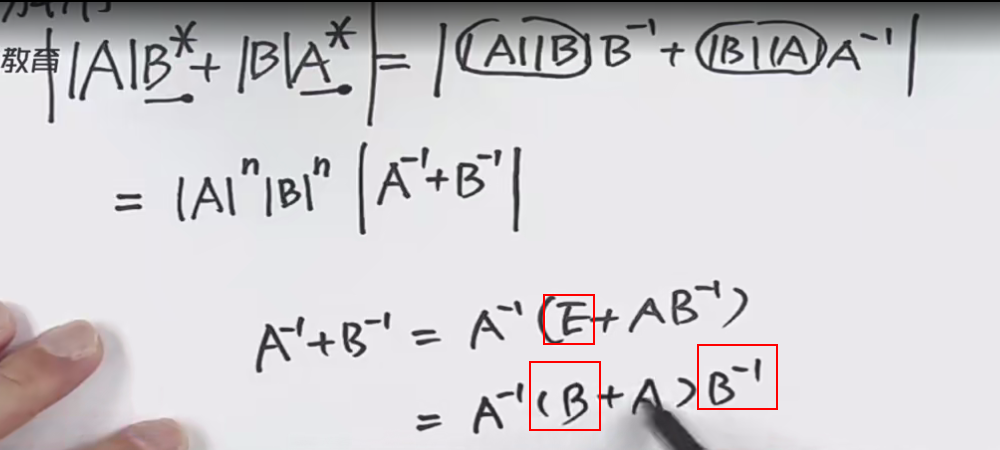 教育 ||A|B* + |B|A*| = ||A||B|B⁻¹ + |B||A|A⁻¹|
= |A|ⁿ|B|ⁿ |A⁻¹+B⁻¹|
A⁻¹+B⁻¹ = A⁻¹(E+AB⁻¹)
= A⁻¹(B+A)B⁻¹